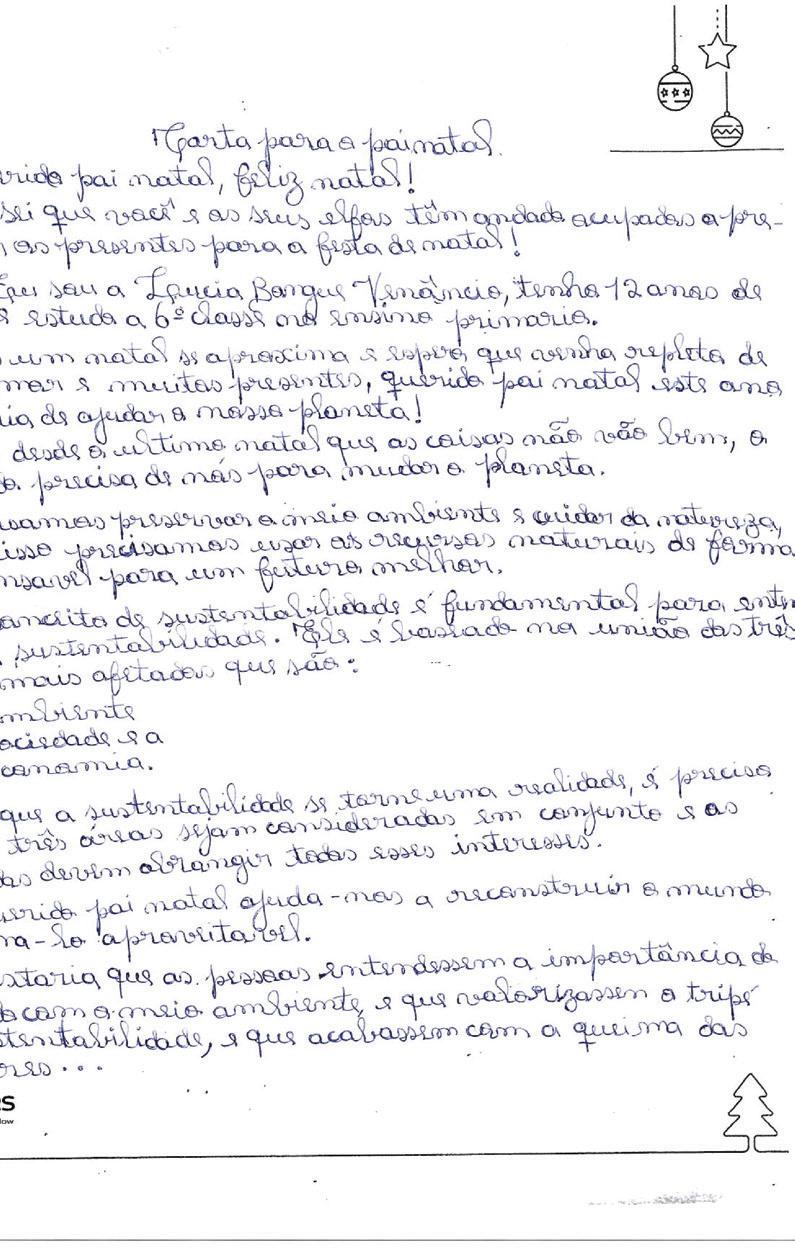 Carta para o pai natal.
rido pai natal, feliz natal!
sei que você e os seus elfos têm andado ocupados a pre-
os presentes para a festa de natal!
Eu sou a Lúcia Bangue Venâncio, tenho 12 anos de
e estudo a 6ª classe no ensino primario.
um natal se aproxima e espero que venha repleto de
mor e muitos presentes, querido pai natal este ano
ia de ajudar o nosso planeta!
desde o ultimo natal que as coisas não vão bem, o
o. precisa de nós para mudar o planeta.
samos preservar o meio ambiente e cuidar da natureza,
isso precisamos usar os recursos naturais de forma
nsavel para um futuro melhor.
onceito de sustentabilidade é fundamental para enten
sustentabilidade. Ele é baseado na união das três
mais afetadas que são:
mbiente
ociedade e a
conomia.
que a sustentabilidade se torne uma realidade, é preciso
três áreas sejam consideradas em conjunto e as
as devem abrangir todos esses interesses.
erido pai natal ajuda-nos a reconstruir o mundo
na-lo aproveitavel.
staria que as pessoas entendessem a importância do
o com o meio ambiente, e que valorizassem o tripé
stentabilidade, e que acabassem com a queima das
res...
RS
low